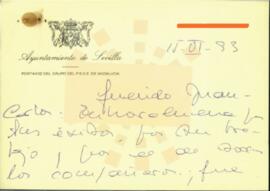 Ayuntamiento de Sevilla
PORTAVOZ DEL GRUPO DEL P.S.O.E. DE ANDALUCIA
15-VI-83
Querido Juan
Carlos: Enhorabuena por
tus éxitos, por tu
y por el de
los compañeros; fue